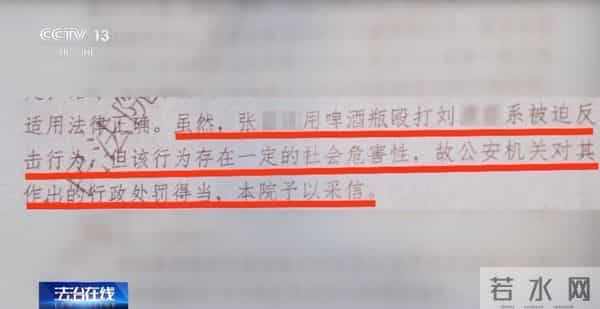 CCTV 13
适用法律正确。虽然，张 用啤酒瓶殴打刘 系被迫反
击行为，但该行为存在一定的社会危害性，故公安机关对其
作出的行政处罚得当，本院予以采信。
法治在线
若水网